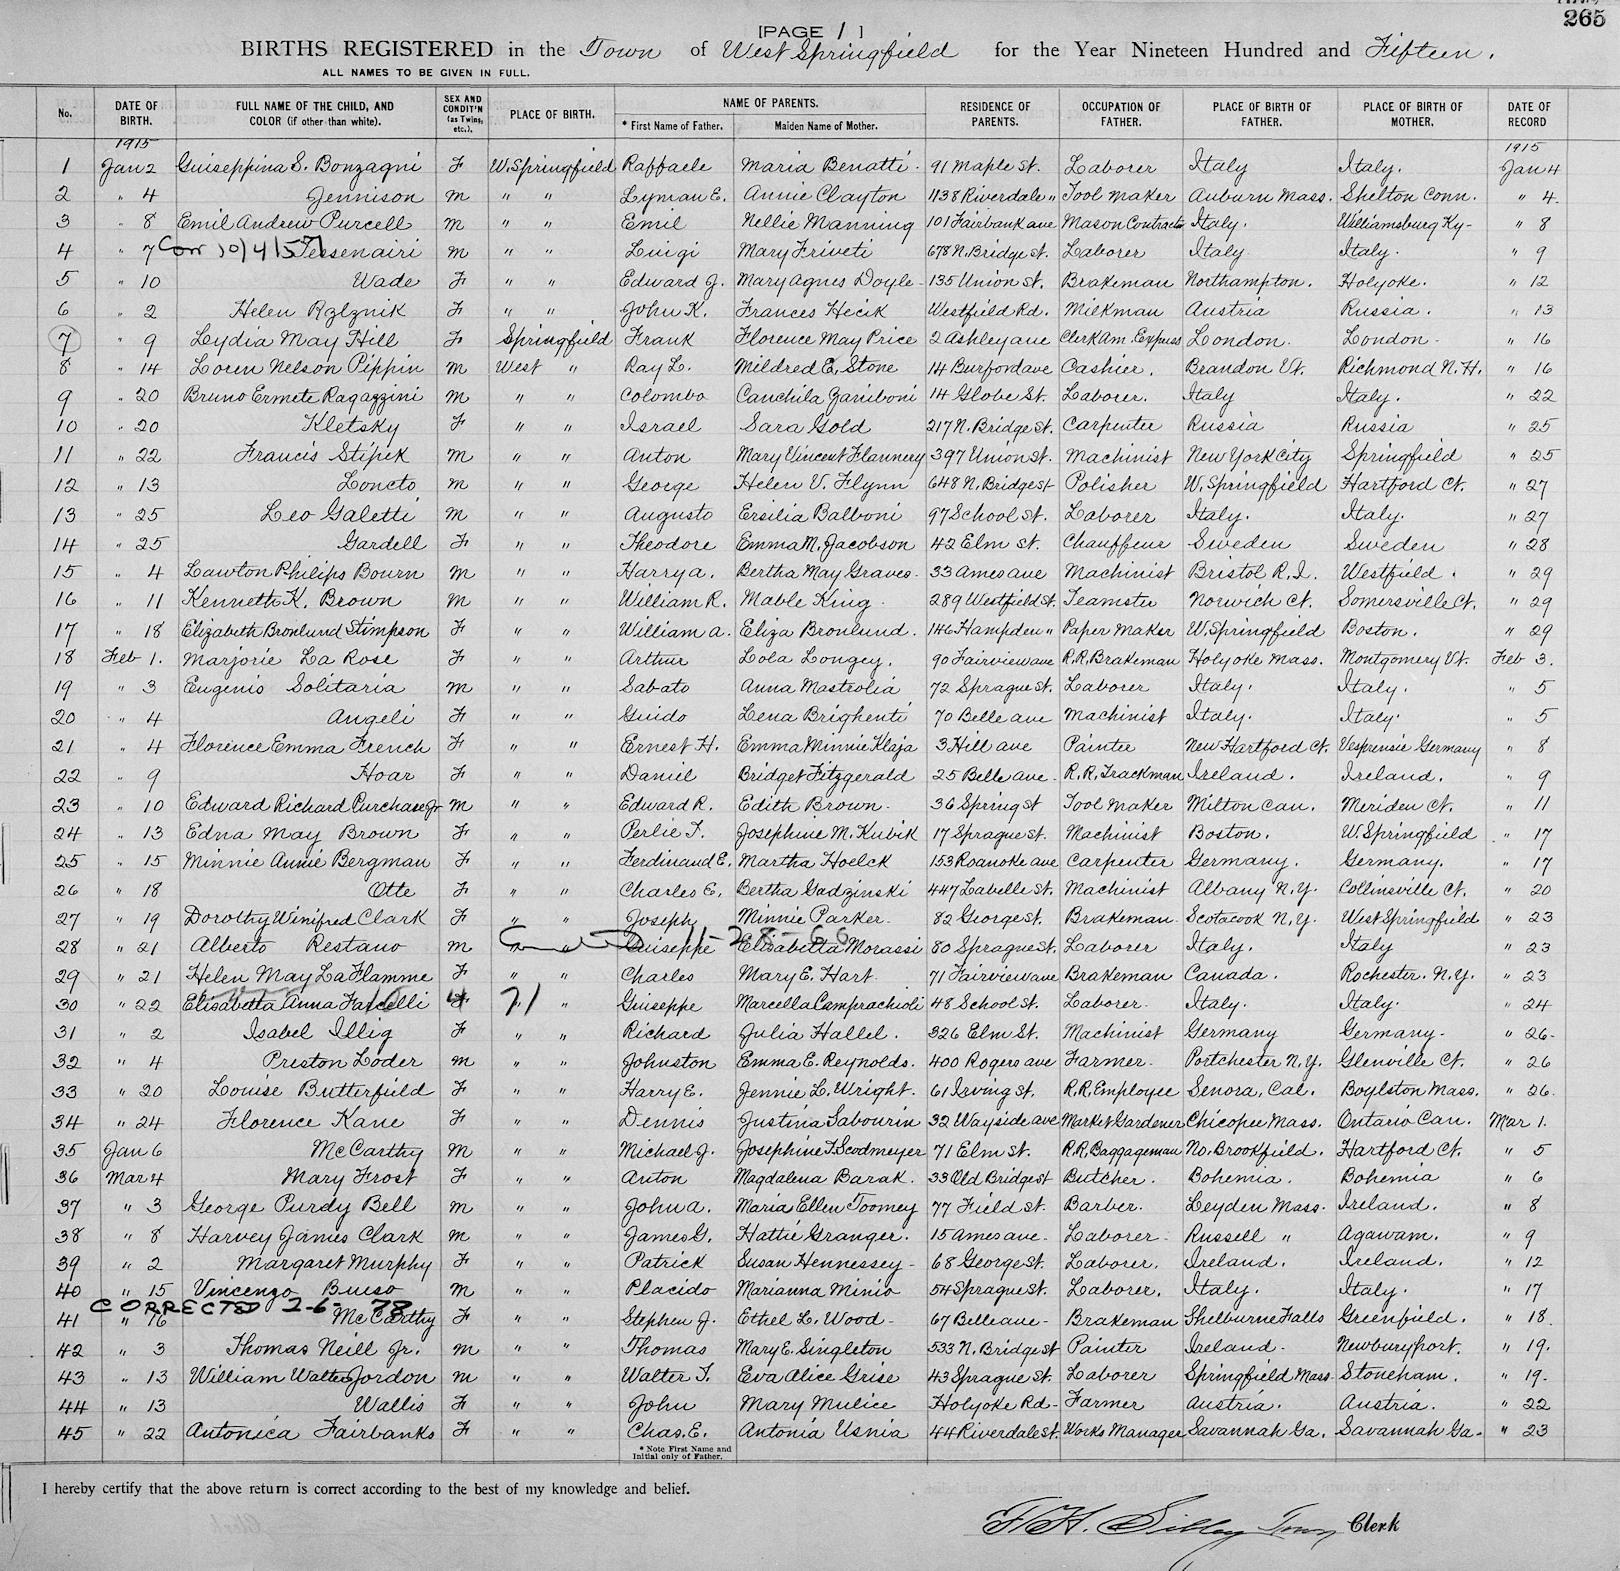 265
[PAGE 1 ]
BIRTHS REGISTERED in the Town of West Springfield for the Year Nineteen Hundred and Fifteen.
ALL NAMES TO BE GIVEN IN FULL.
No. DATE OF BIRTH. FULL NAME OF THE CHILD, AND COLOR (if other than white). SEX AND CONDIT'N (as Twins, etc.). PLACE OF BIRTH. NAME OF PARENTS. RESIDENCE OF PARENTS. OCCUPATION OF FATHER. PLACE OF BIRTH OF FATHER. PLACE OF BIRTH OF MOTHER. DATE OF RECORD
* First Name of Father. Maiden Name of Mother.
1915 1915
1 Jan 2 Guiseppina S. Bonzagni F W. Springfield Raffaele Maria Benatti. 91 Maple St. Laborer Italy Italy. Jan 4
2 " 4 Jennison M " " Lyman E. Annie Clayton 1138 Riverdale " Tool Maker Auburn Mass. Shelton Conn. " 4.
3 " 8 Emil Andrew Purcell M " " Emil Nellie Manning 101 Fairbank ave Mason Contractor Italy. Williamsburg Ky- " 8
4 " 7 Corr 10/4/57 Tessenairi M " " Luigi Mary Friveti 678 N. Bridge St. Laborer Italy Italy. " 9
5 " 10 Wade F " " Edward J. Mary Agnes Doyle- 135 Union St. Brakeman Northampton. Holyoke. " 12
6 " 2 Helen Rzlznik F " " John K. Frances Hecik Westfield Rd. Milkman Austria Russia. " 13
7 " 9 Lydia May Hill F Springfield Frank Florence May Price 2 Ashley ave Clerk Am. Express London. London- " 16
8 " 14 Loren Nelson Pippin M West " Ray L. Mildred E. Stone 14 Burford ave Cashier. Brandon Vt. Richmond N.H. " 16
9 " 20 Bruno Ermete Ragazzini M " " Colombo Canchila Zaniboni 14 Globe St. Laborer. Italy Italy. " 22
10 " 20 Kletsky F " " Israel Sara Gold 217 N. Bridge St. Carpenter Russia Russia " 25
11 " 22 Francis Stipek M " " Anton Mary Vincent Flannery 397 Union St. Machinist New York City Springfield " 25
12 " 13 Loncto M " " George Helen V. Flynn 648 N. Bridge St Polisher W. Springfield Hartford Ct. " 27
13 " 25 Leo Galetti M " " Augusto Ersilia Balboni 97 School St. Laborer Italy. Italy. " 27
14 " 25 Gardell F " " Theodore Emma M. Jacobson 42 Elm St. Chauffeur Sweden Sweden " 28
15 " 4 Lawton Philips Bourn M " " Harry A. Bertha May Graves- 33 Ames ave Machinist Bristol R.I. Westfield. " 29
16 " 11 Kenneth K. Brown M " " William R. Mable King. 289 Westfield St. Teamster Norwich Ct. Somersville Ct. " 29
17 " 18 Elizabeth Bronlund Stimpson F " " William A. Eliza Bronlund. 146 Hampden " Paper Maker W. Springfield Boston. " 29
18 Feb 1. Marjorie La Rose F " " Arthur Lola Longey. 90 Fairview ave R.R. Brakeman Holyoke Mass. Montgomery Vt. Feb 3.
19 " 3 Eugenio Solitaria M " " Sabato Anna Mastrolia 72 Sprague St. Laborer Italy. Italy. " 5
20 " 4 Angeli F " " Guido Lena Brighenti 70 Belle ave Machinist Italy. Italy. " 5
21 " 4 Florence Emma French F " " Ernest H. Emma Minnie Klaja 3 Hill ave Painter New Hartford Ct. Vesprensie Germany " 8
22 " 9 Hoar F " " Daniel Bridget Fitzgerald 25 Belle ave- R.R. Trackman Ireland. Ireland. " 9
23 " 10 Edward Richard Purchase Jr M " " Edward R. Edith Brown. 36 Spring St Tool Maker Milton Can. Meriden Ct. " 11
24 " 13 Edna May Brown F " " Perlie T. Josephine M. Kubik 17 Sprague St. Machinist Boston. W. Springfield " 17
25 " 15 Minnie Annie Bergman F " " Ferdinand E. Martha Hoelck 153 Roanoke ave Carpenter Germany. Germany. " 17
26 " 18 Otte F " " Charles E. Bertha Gadzinski 447 Labelle St. Machinist Albany N.Y. Collinsville Ct. " 20
27 " 19 Dorothy Winifred Clark F " " Joseph Minnie Parker. 82 George St. Brakeman Scotacook N.Y. West Springfield " 23
28 " 21 Alberto Restano M 11-28-60 Guiseppe Elisabetta Morassi 80 Sprague St. Laborer Italy. Italy " 23
29 " 21 Helen May LaFlamme F " " Charles Mary E. Hart. 71 Fairview ave Brakeman Canada. Rochester. N.Y. " 23
30 " 22 Elisabetta Anna F 4 71 " Guiseppe Marcella Comprachioli 48 School St. Laborer. Italy. Italy. " 24
31 " 2 Isabel Illig F " " Richard Julia Hallel. 326 Elm St. Machinist Germany Germany- " 26.
32 " 4 Preston Loder M " " Johnston Emma E. Reynolds. 400 Rogers ave Farmer- Portchester N.Y. Glenville Ct. " 26
33 " 20 Louise Butterfield F " " Harry E. Jennie L. Wright. 61 Irving St. R.R. Employee Senora, Cal. Boylston Mass. " 26.
34 " 24 Florence Kane F " " Dennis Justina Sabourin 32 Wayside ave Market Gardener Chicopee Mass. Ontario Can. Mar 1.
35 Jan 6 McCarthy M " " Michael J. Josephine F. Scodmeyer 71 Elm St. R.R. Baggageman No. Brookfield. Hartford Ct. " 5
36 Mar 4 Mary Frost F " " Anton Magdalena Barak. 33 Old Bridge St Butcher. Bohemia. Bohemia " 6
37 " 3 George Purdy Bell M " " John A. Maria Ellen Toomey 77 Field St. Barber. Leyden Mass. Ireland. " 8
38 " 8 Harvey James Clark M " " James G. Hattie Granger. 15 Ames ave- Laborer- Russell " Agawam. " 9
39 " 2 Margaret Murphy F " " Patrick Susan Hennessey- 68 George St. Laborer. Ireland. Ireland. " 12
40 " 15 Vincenzo Buiso M " " Placido Marianna Minio 54 Sprague St. Laborer. Italy. Italy. " 17
CORRECTED 2-6-78
41 " 16 McCarthy F " " Stephen J. Ethel L. Wood- 67 Belle ave- Brakeman Shelburne Falls Greenfield. " 18.
42 " 3 Thomas Neill Jr. M " " Thomas Mary E. Singleton 533 N. Bridge St Painter Ireland- Newburyport. " 19.
43 " 13 William Walter Jordon M " " Walter T. Eva Alice Grise 43 Sprague St. Laborer Springfield Mass. Stoneham. " 19.
44 " 13 Wallis F " " John Mary Mulice Holyoke Rd- Farmer Austria. Austria. " 22
45 " 22 Antonica Fairbanks F " " Chas. E. Antonia Usnia 44 Riverdale St. Works Manager Savannah Ga. Savannah Ga- " 23
* Note First Name and
Initial only of Father.
I hereby certify that the above return is correct according to the best of my knowledge and belief.
F. H. Sibley Town Clerk